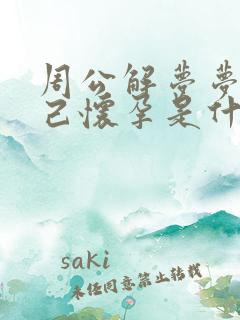 周公解梦梦
己怀孕是什
saki
未经同意禁止转载